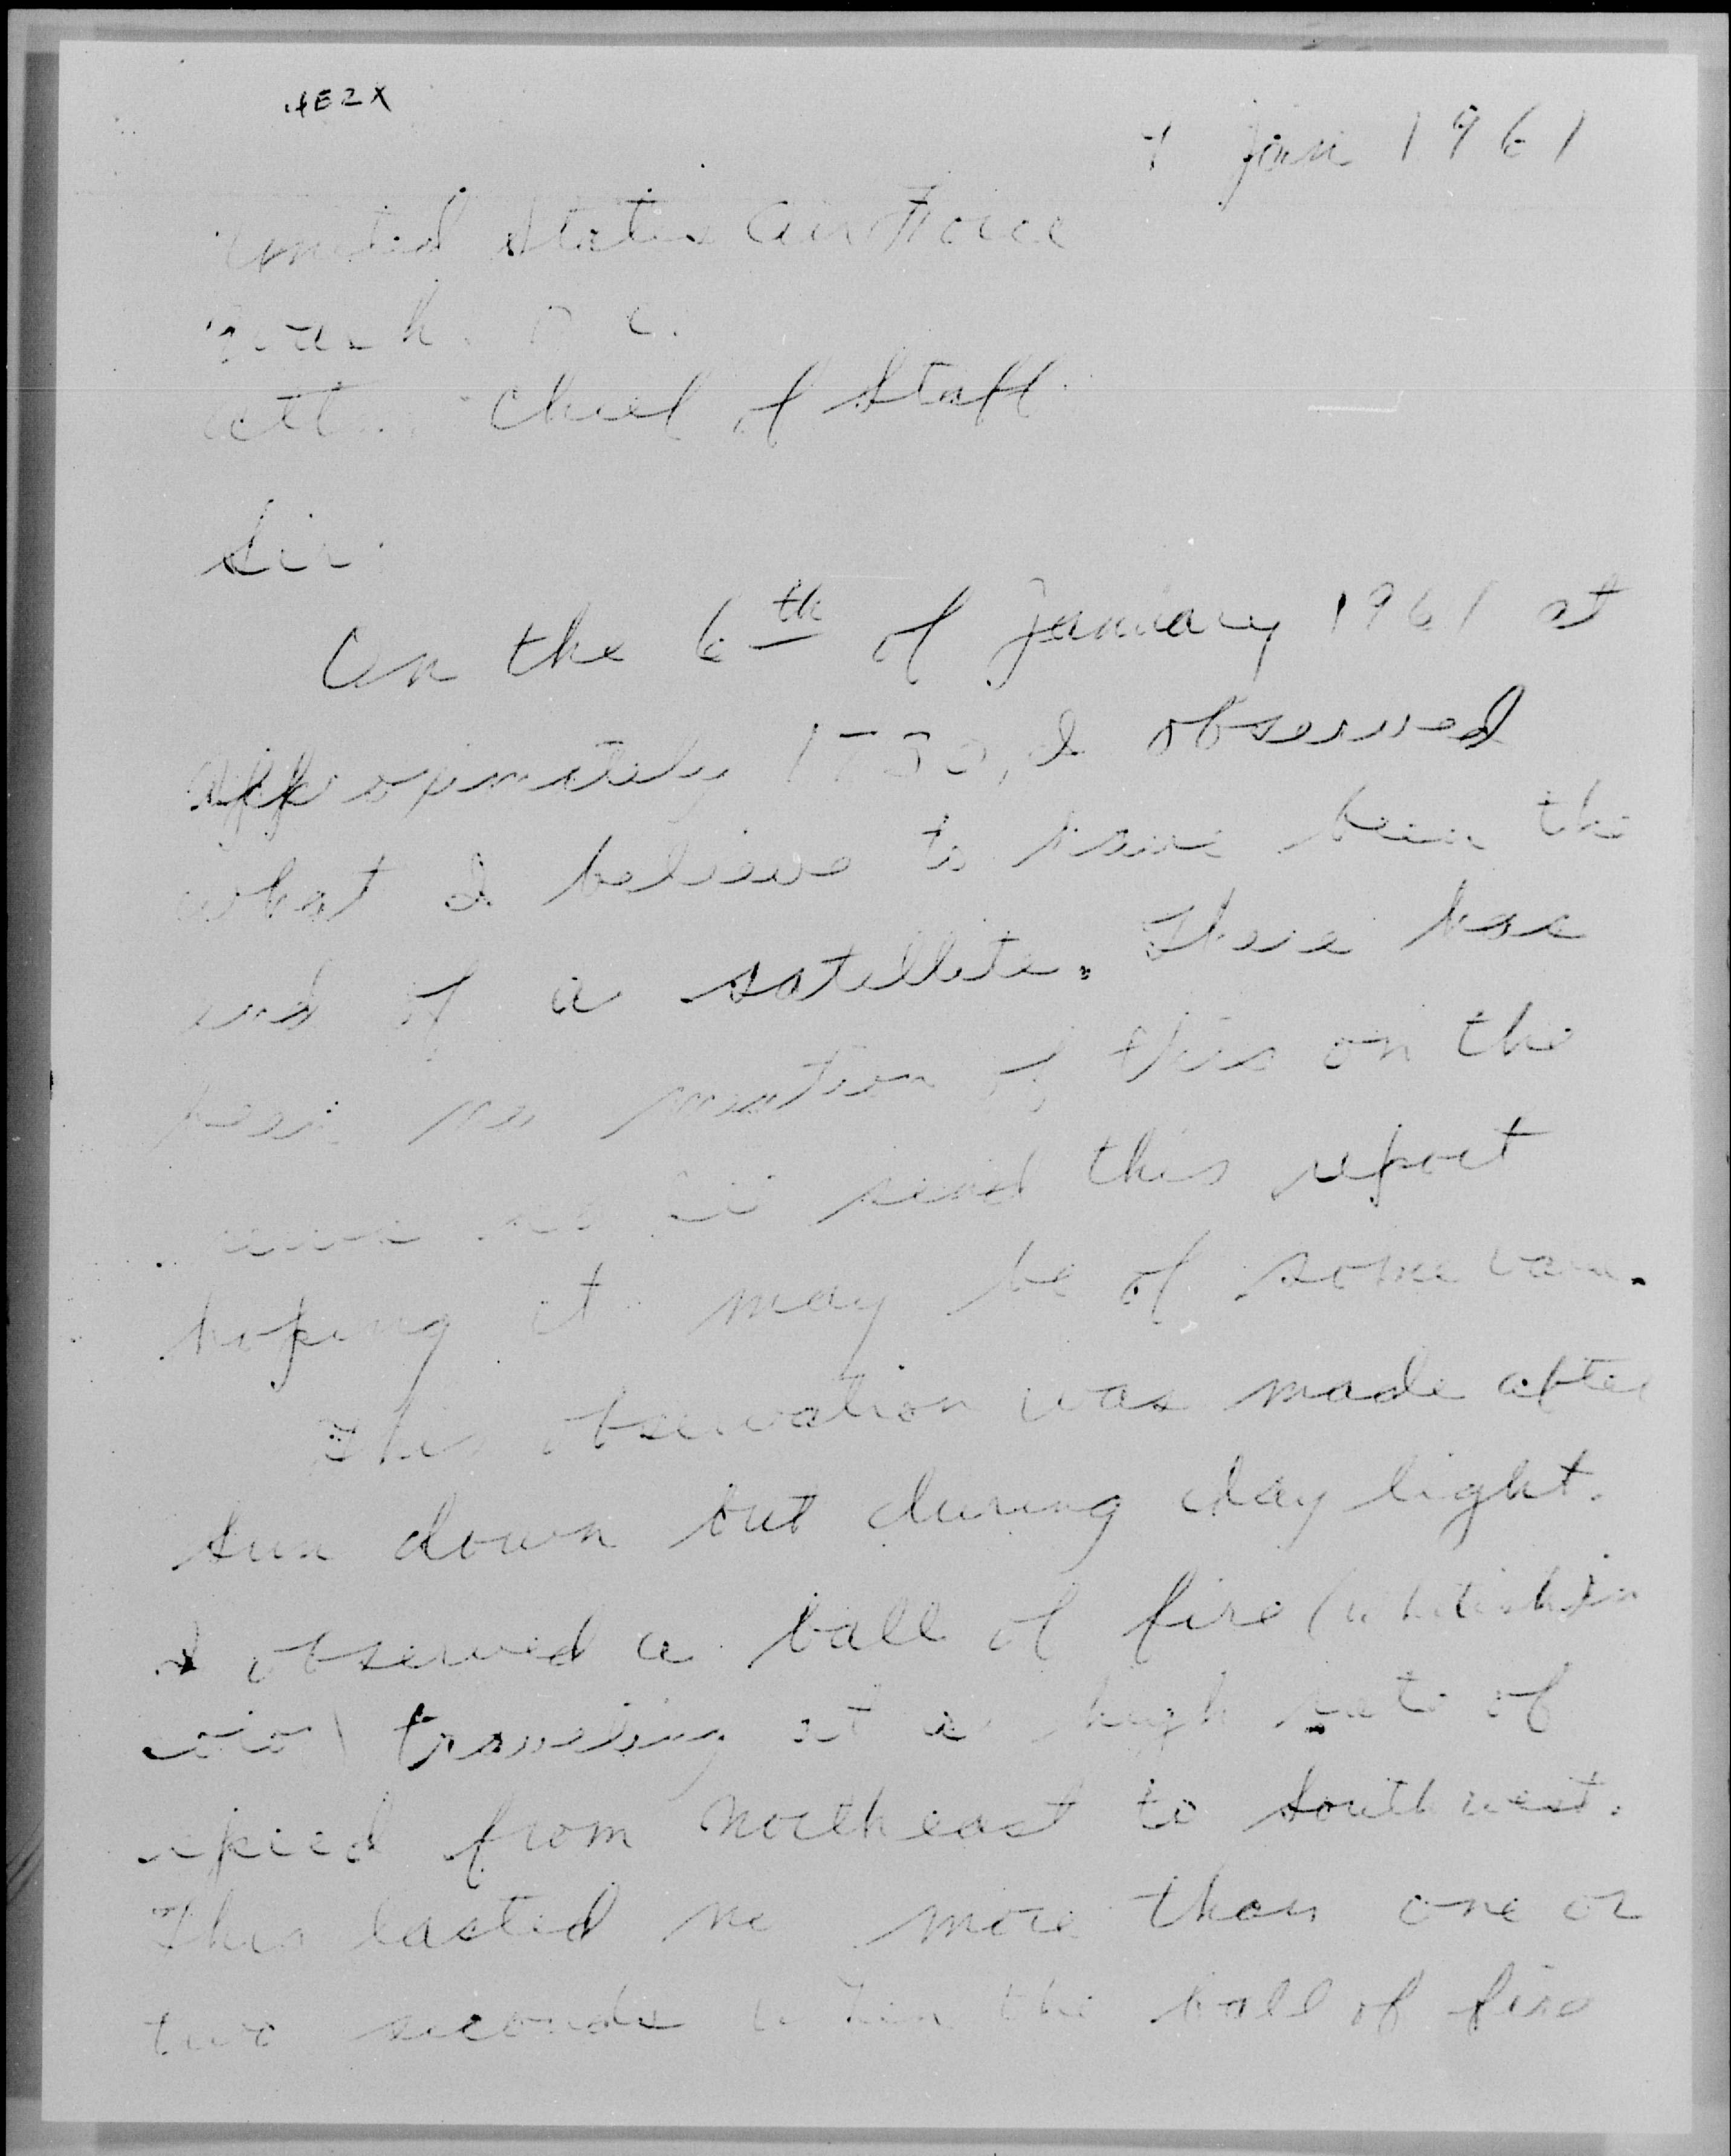 4E2X
7 Jan 1961
United States Air Force
Wash. D C.
Att. Chief of Staff
Sir.
On the 6th of January 1961 at
approximately 1730, I observed
what I believe to have been the
end of a satellite. There has
been no mention of this on the
send this report
hoping it may be of some
This observation was made after
sun down but during day light.
I observed a ball of fire (whitish in
color) traveling at a high rate of
speed from northeast to southwest.
This lasted no more than one or
two seconds when the ball of fire